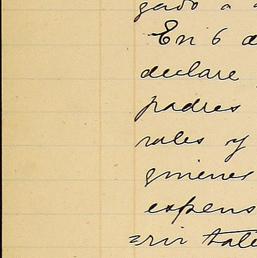 gado a
En 6 d
declare
padres
rales y
gimenes
expens
rir tale